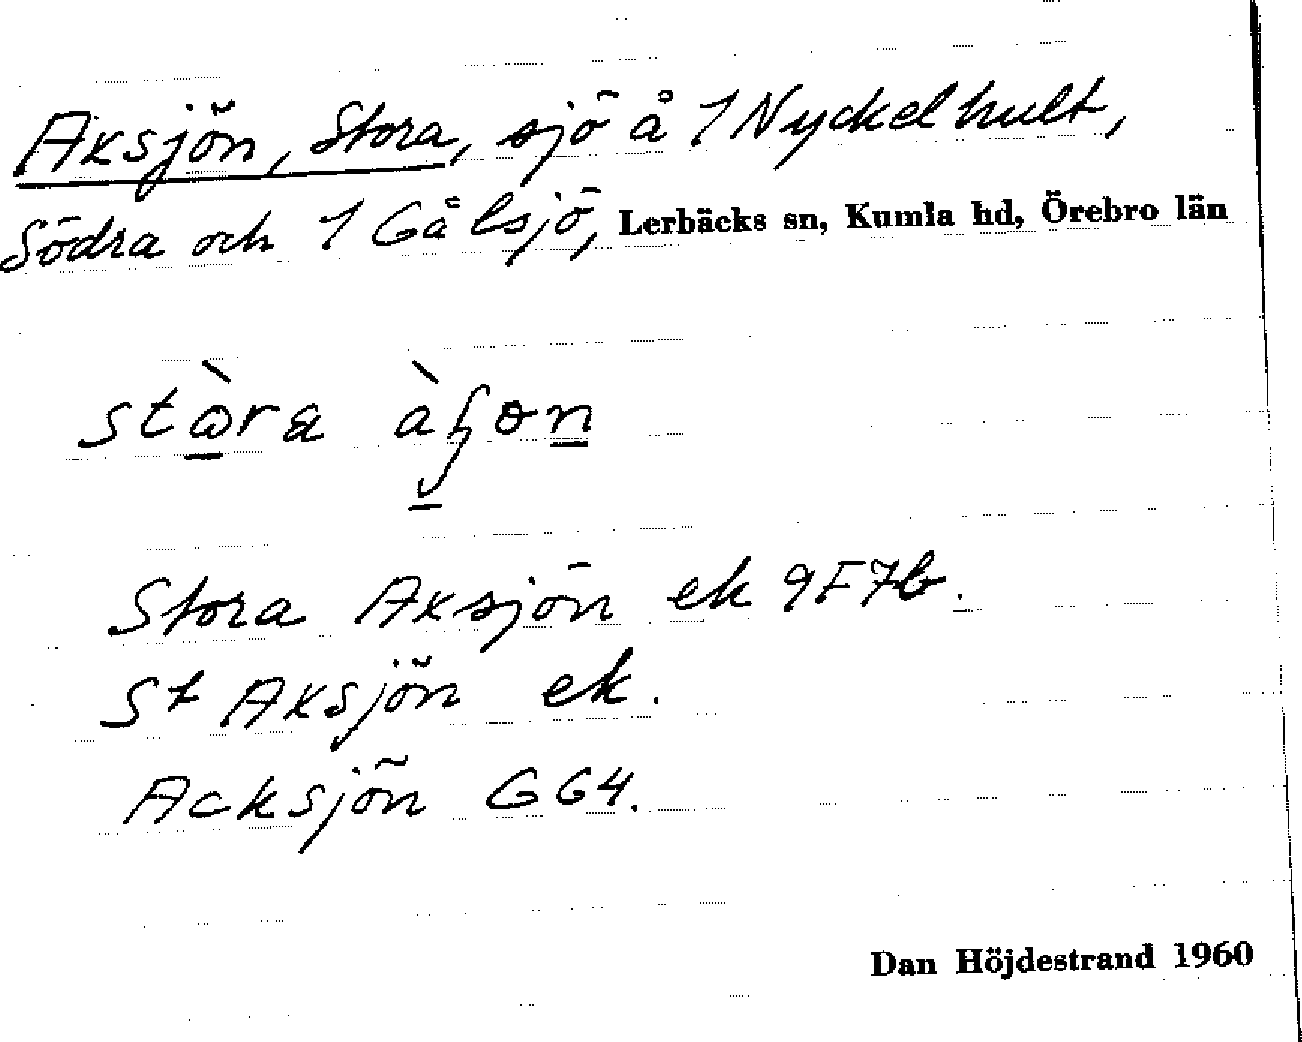 Aksjön, Stora, sjö å 1 Nyckelhult,
Södra och 1 Gålsjö, Lerbäcks sn, Kumla hd, Örebro län
Stora Aksjön ek 9F7b.
St Aksjön ek.
Acksjön GG4.
Dan Höjdestrand 1960